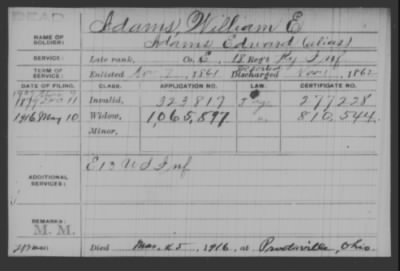 DEAD
Adams, William E
NAME OF SOLDIER:
Adams Edward (alias)
SERVICE:
Late rank, Co. E, 18 Reg't Ky Inf
TERM OF SERVICE:
Enlisted Nov 1861 Discharged 1862
DATE OF FILING.
CLASS.
APPLICATION NO.
LAW.
CERTIFICATE NO.
11
Invalid,
323817
277228
1916 May 10
Widow,
1,065,897
810,544
Minor,
E 13 US Inf
ADDITIONAL SERVICES:
REMARKS:
M. M.
Died Mar. 25, 1916, at Ohio.